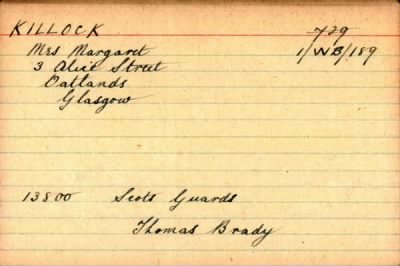 KILLOCK 729
Mrs Margaret 1/WB/189
3 Alice Street
Oatlands
Glasgow
13800 Scots Guards
Thomas Brady